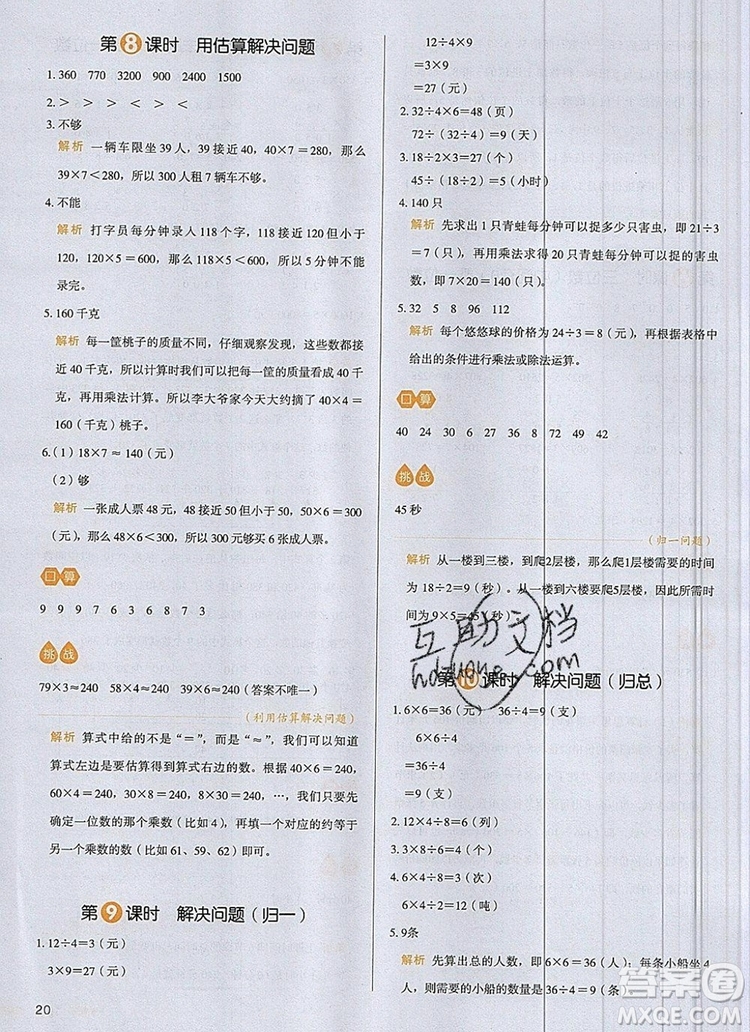 第8课时 用估算解决问题
1. 360 770 3200 900 2400 1500
2. > > > < > <
3. 不够
解析 一辆车限坐 39 人，39 接近 40，40×7＝280，那么
39×7＜280，所以 300 人租 7 辆车不够。
4. 不能
解析 打字员每分钟录入 118 个字，118 接近 120 但小于
120，120×5＝600，那么 118×5＜600，所以 5 分钟不能
录完。
5. 160 千克
解析 每一筐桃子的质量不同，仔细观察发现，这些数都接
近 40 千克，所以计算时我们可以把每一筐的质量都看成 40 千
克，再用乘法计算，所以李大爷家今天大约摘了 40×4＝
160（千克）桃子。
6.（1）18×7≈140（元）
（2）够
解析 一张成人票 48 元，48 接近 50 且小于 50，50×6＝300
（元），那么 48×6＜300，所以 300 元够买 6 张成人票。
口算
9 9 9 7 6 3 6 8 7 3
挑战
79×3≈240 58×4≈240（答案不唯一）
（利用估算解决问题）
解析 算式中给的不是“＝”，而是“≈”，我们可以知道
算式左边是要估算得到算式右边的数。根据 40×6＝240，
60×4＝240，30×8＝240，8×30＝240，……，我们只要先
确定一位数的那个乘数（比如 4），再填一个对应的约等于
另一个乘数的数（比如 61、59、62）即可。
第9课时 解决问题（归一）
1. 12÷4＝3（元）
3×9＝27（元）
20
12÷4×9
＝3×9
＝27（元）
2. 32÷4×6＝48（页）
72÷（32÷4）＝9（天）
3. 18÷2×3＝27（个）
45÷（18÷2）＝5（小时）
4. 140 只
解析 先求出 1 只青蛙每分钟可以捉多少只害虫，即 21÷3
＝7（只），再用乘法求得 20 只青蛙每分钟可以捉害虫的只
数，即 7×20＝140（只）。
5. 32 5 8 96 112
解析 每个悠悠球的价格为 24÷3＝8（元），再根据表格中
给出的条件进行乘法或除法运算。
口算
40 24 30 6 27 36 8 72 49 42
挑战
45 秒
（归一问题）
解析 从一楼到三楼，到爬2层楼，所以爬1层楼需要的时间
为 18÷2＝9（秒）。从一楼到六楼要爬5层楼，所以需要时
间为 9×5＝45（秒）。
互助文档
hdzuoye.com
第10课时 解决问题（归总）
1. 6×6＝36（元） 36÷4＝9（支）
6×6÷4
＝36÷4
＝9（支）
2. 12×4÷8＝6（列）
3. 3×8÷6＝4（个）
4. 6×4÷8＝3（次）
6×4÷2＝12（吨）
5. 9条
解析 先算出总的人数，即 6×6＝36（人）；每条小船坐 4
人，则需要的小船的数量是 36÷4＝9（条）。
答案圈
MXQE.COM